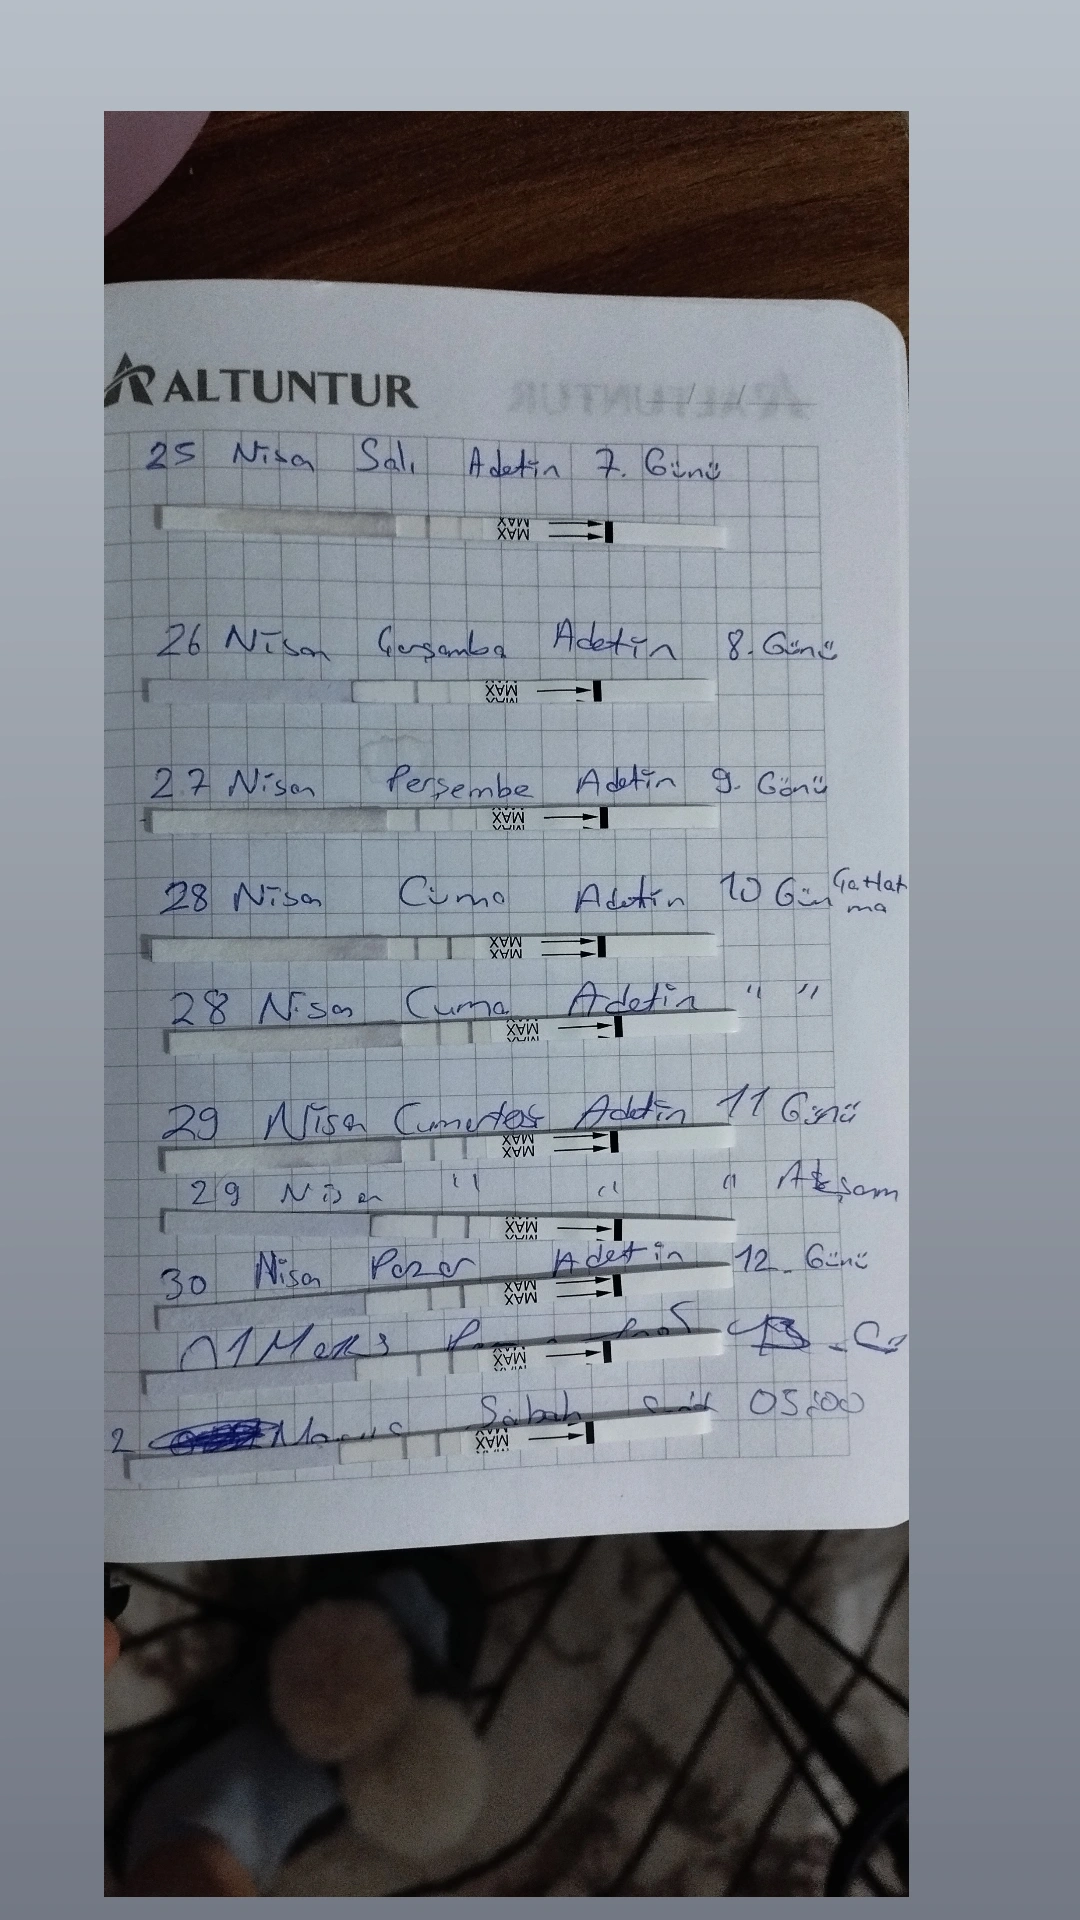 ALTUNTUR
25 Nisan Salı Adetin 7. Günü
MAX
MAX
26 Nisan Çarşamba Adetin 8. Günü
MAX
27 Nisan Perşembe Adetin 9. Günü
MAX
28 Nisan Cuma Adetin 10 Gün Çatlatma
MAX
MAX
28 Nisan Cuma Adetin " "
MAX
29 Nisan Cumertesi Adetin 11 Günü
MAX
MAX
29 Nisan " " " Akşam
MAX
30 Nisan Pazar Adetin 12. Günü
MAX
MAX
MAX
2 Sabah 05:00
MAX